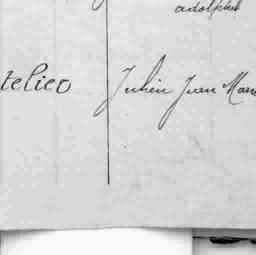 adolphe
telier Julien Jean Marie